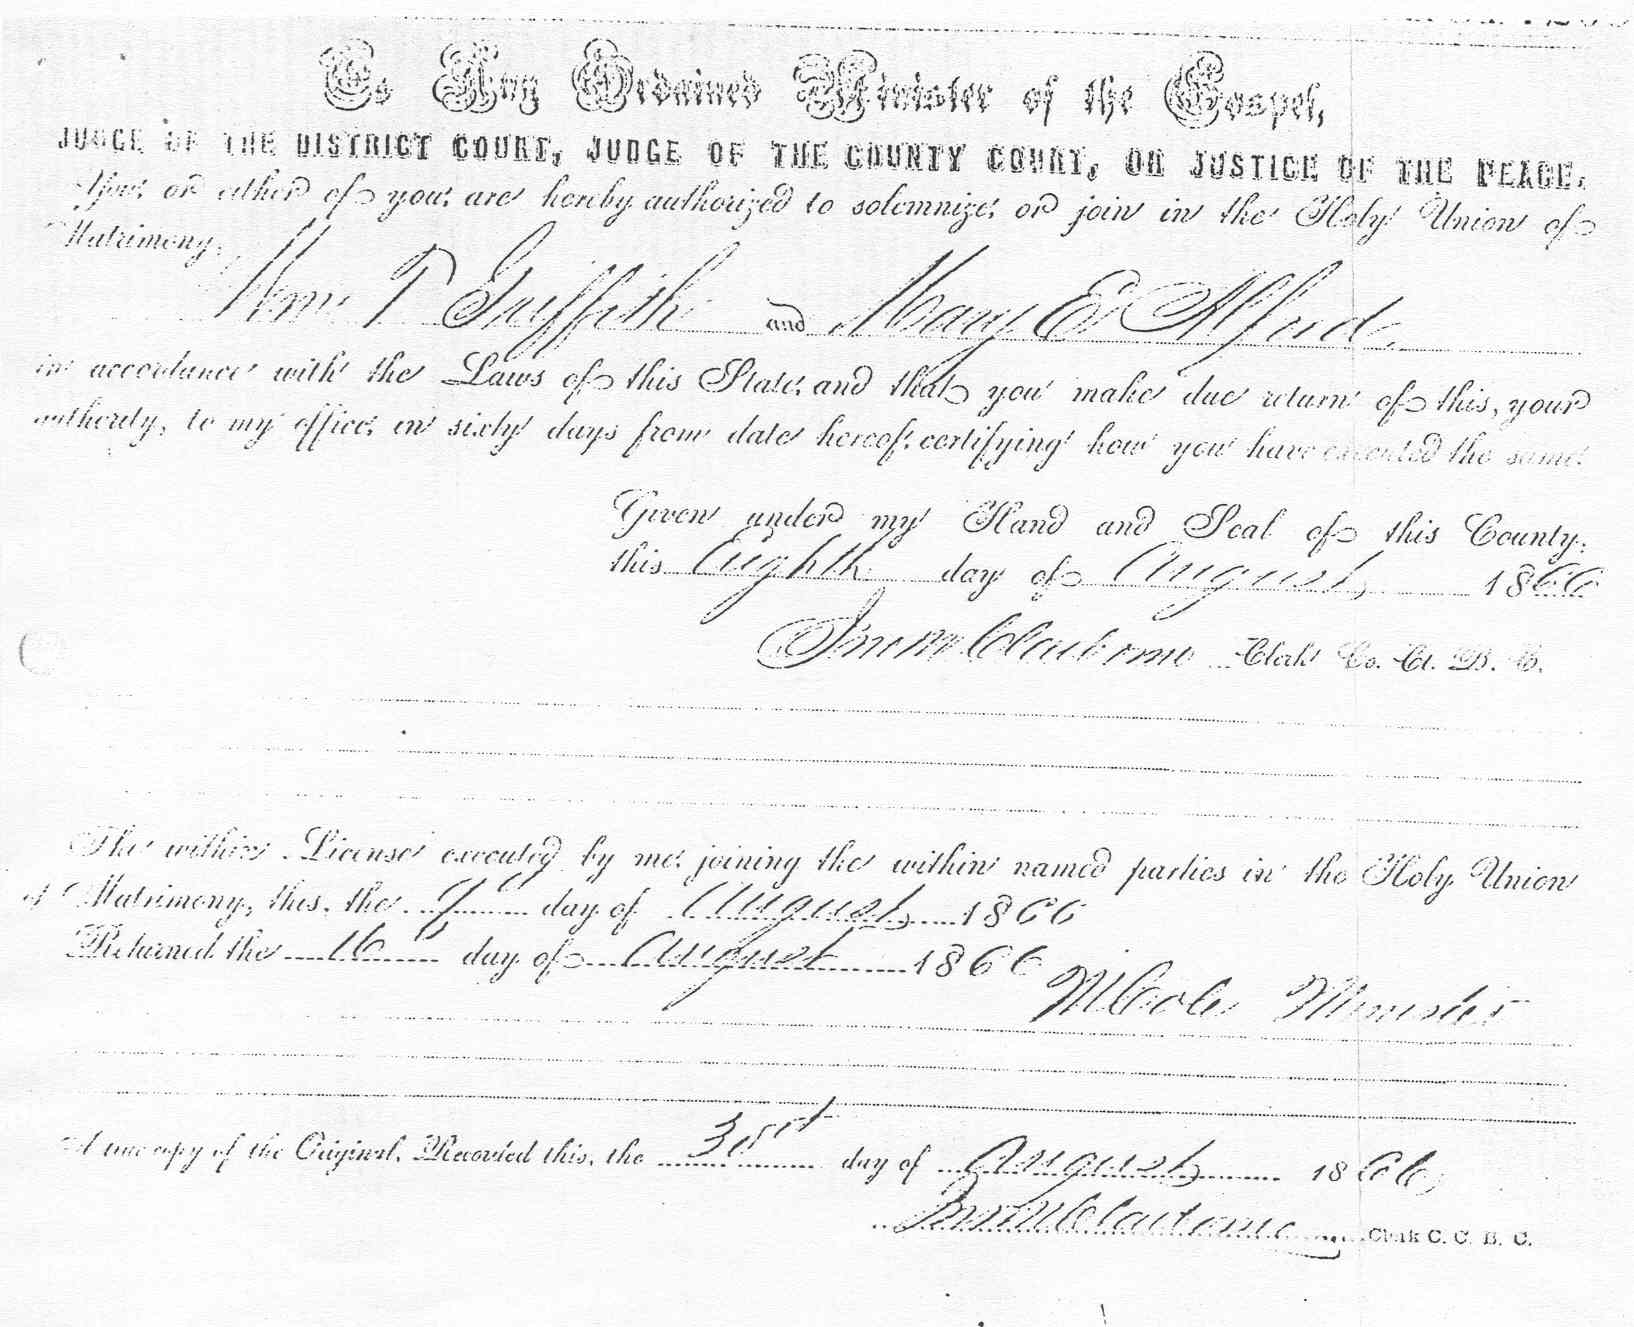 To Any Ordained Minister of the Gospel,
JUDGE OF THE DISTRICT COURT, JUDGE OF THE COUNTY COURT, OR JUSTICE OF THE PEACE.
You or either of you are hereby authorized to solemnize or join in the Holy Union of
Matrimony,
Wm T Griffith and Mary E Alford
in accordance with the Laws of this State, and that you make due return of this, your
authority, to my office in sixty days from date hereof, certifying how you have executed the same.
Given under my Hand and Seal of this County,
this Eighth day of August 1866
Claiborne Clerk Co. Ct. B. C.
The within License executed by me, joining the within named parties in the Holy Union
of Matrimony, this, the 9" day of August 1866
Returned the 16" day of August 1866
M Cole Minister
A true copy of the Original. Recorded this, the day of August 1866
Claiborne Clerk C. C. B. C.